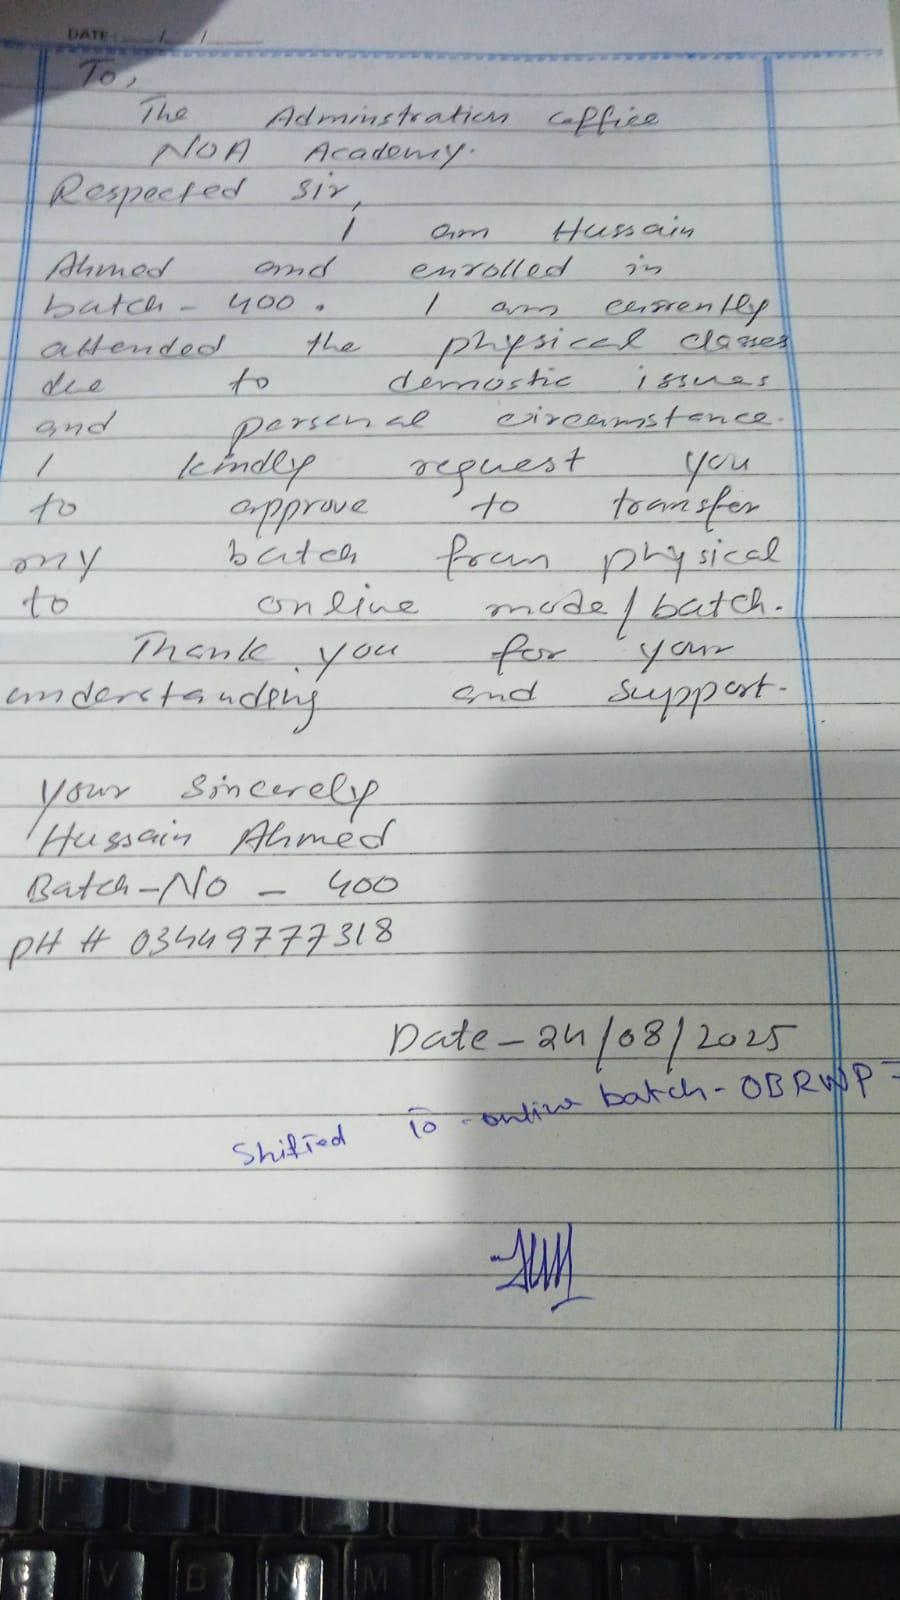 DATE: __/__/____
To,
The Adminstration office
NOA Academy.
Respected Sir,
I am Hussain
Ahmed and enrolled in
batch - 400. I am currently
attended the physical classes
due to demostic issues
and personal circumstance.
I kindly request you
to approve to transfer
my batch from physical
to online mode/batch.
Thank you for your
understanding and support.
your Sincerely
Hussain Ahmed
Batch-No - 400
PH # 03449777318
Date - 24/08/2025
Shifted To online batch - OBRWP -